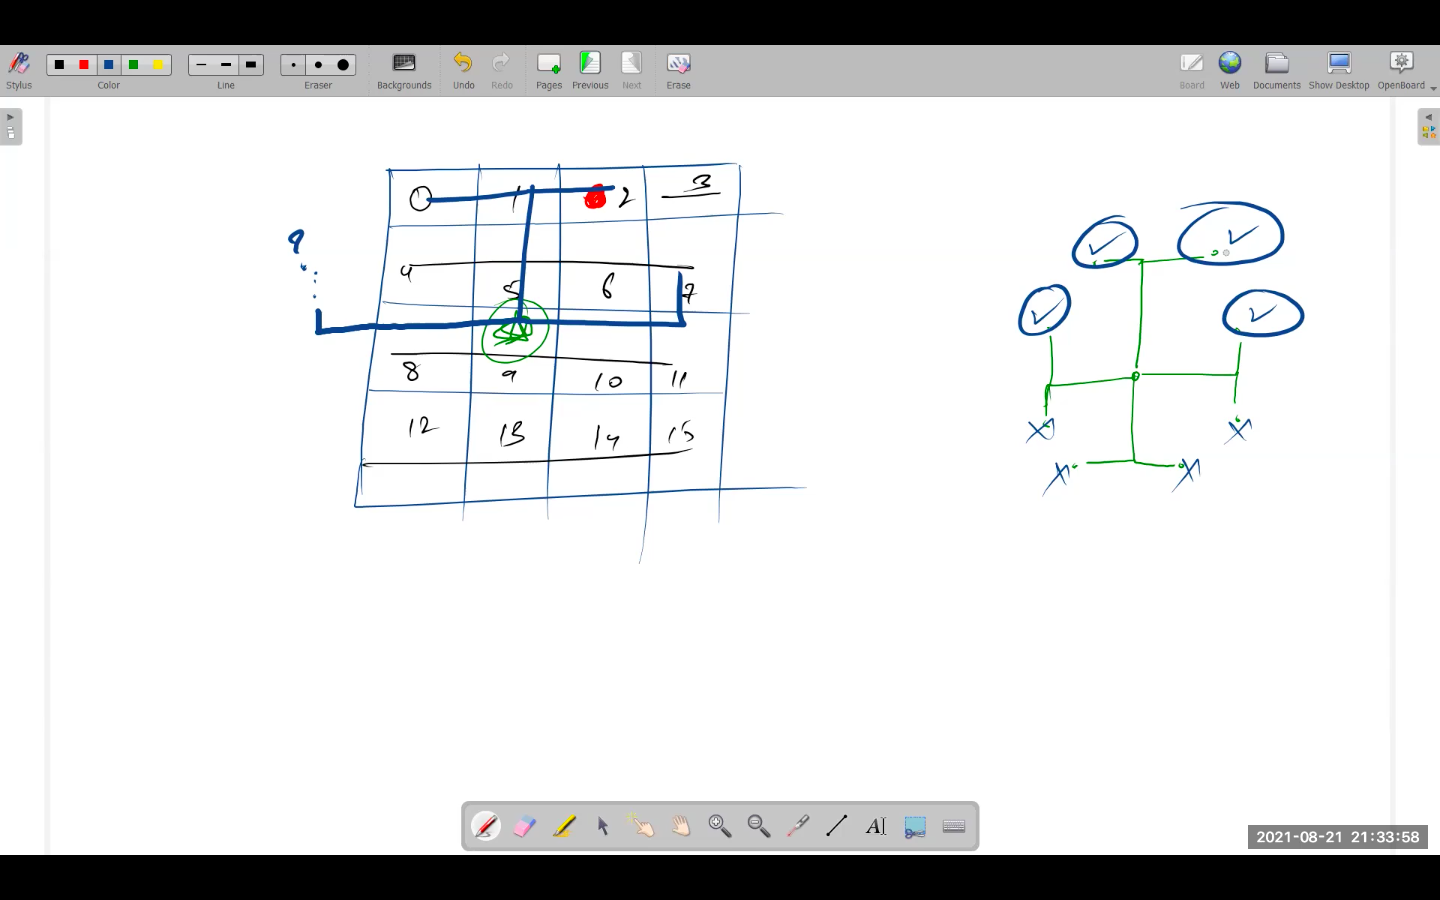 Stylus Color Line Eraser Backgrounds Undo Redo Pages Previous Next Erase Board Web Documents Show Desktop OpenBoard
0 1 2 3
4 5 6 7
8 9 10 11
12 13 14 15
?
✓ ✓
✓ ✓
X X
X X
AI
2021-08-21 21:33:58